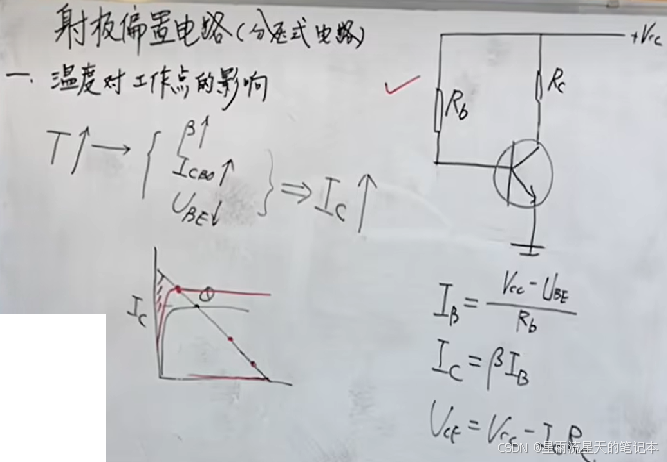 射极偏置电路(分压式电路)
一. 温度对工作点的影响
T↑→{β↑ I_CBO↑ U_BE↓}⇒I_C↑
+Vcc
Rb
Rc
I_C
①
I_B = (Vcc - U_BE) / Rb
I_C = βI_B
U_CE = Vcc - I_C R
CSDN @星雨流星天的笔记本